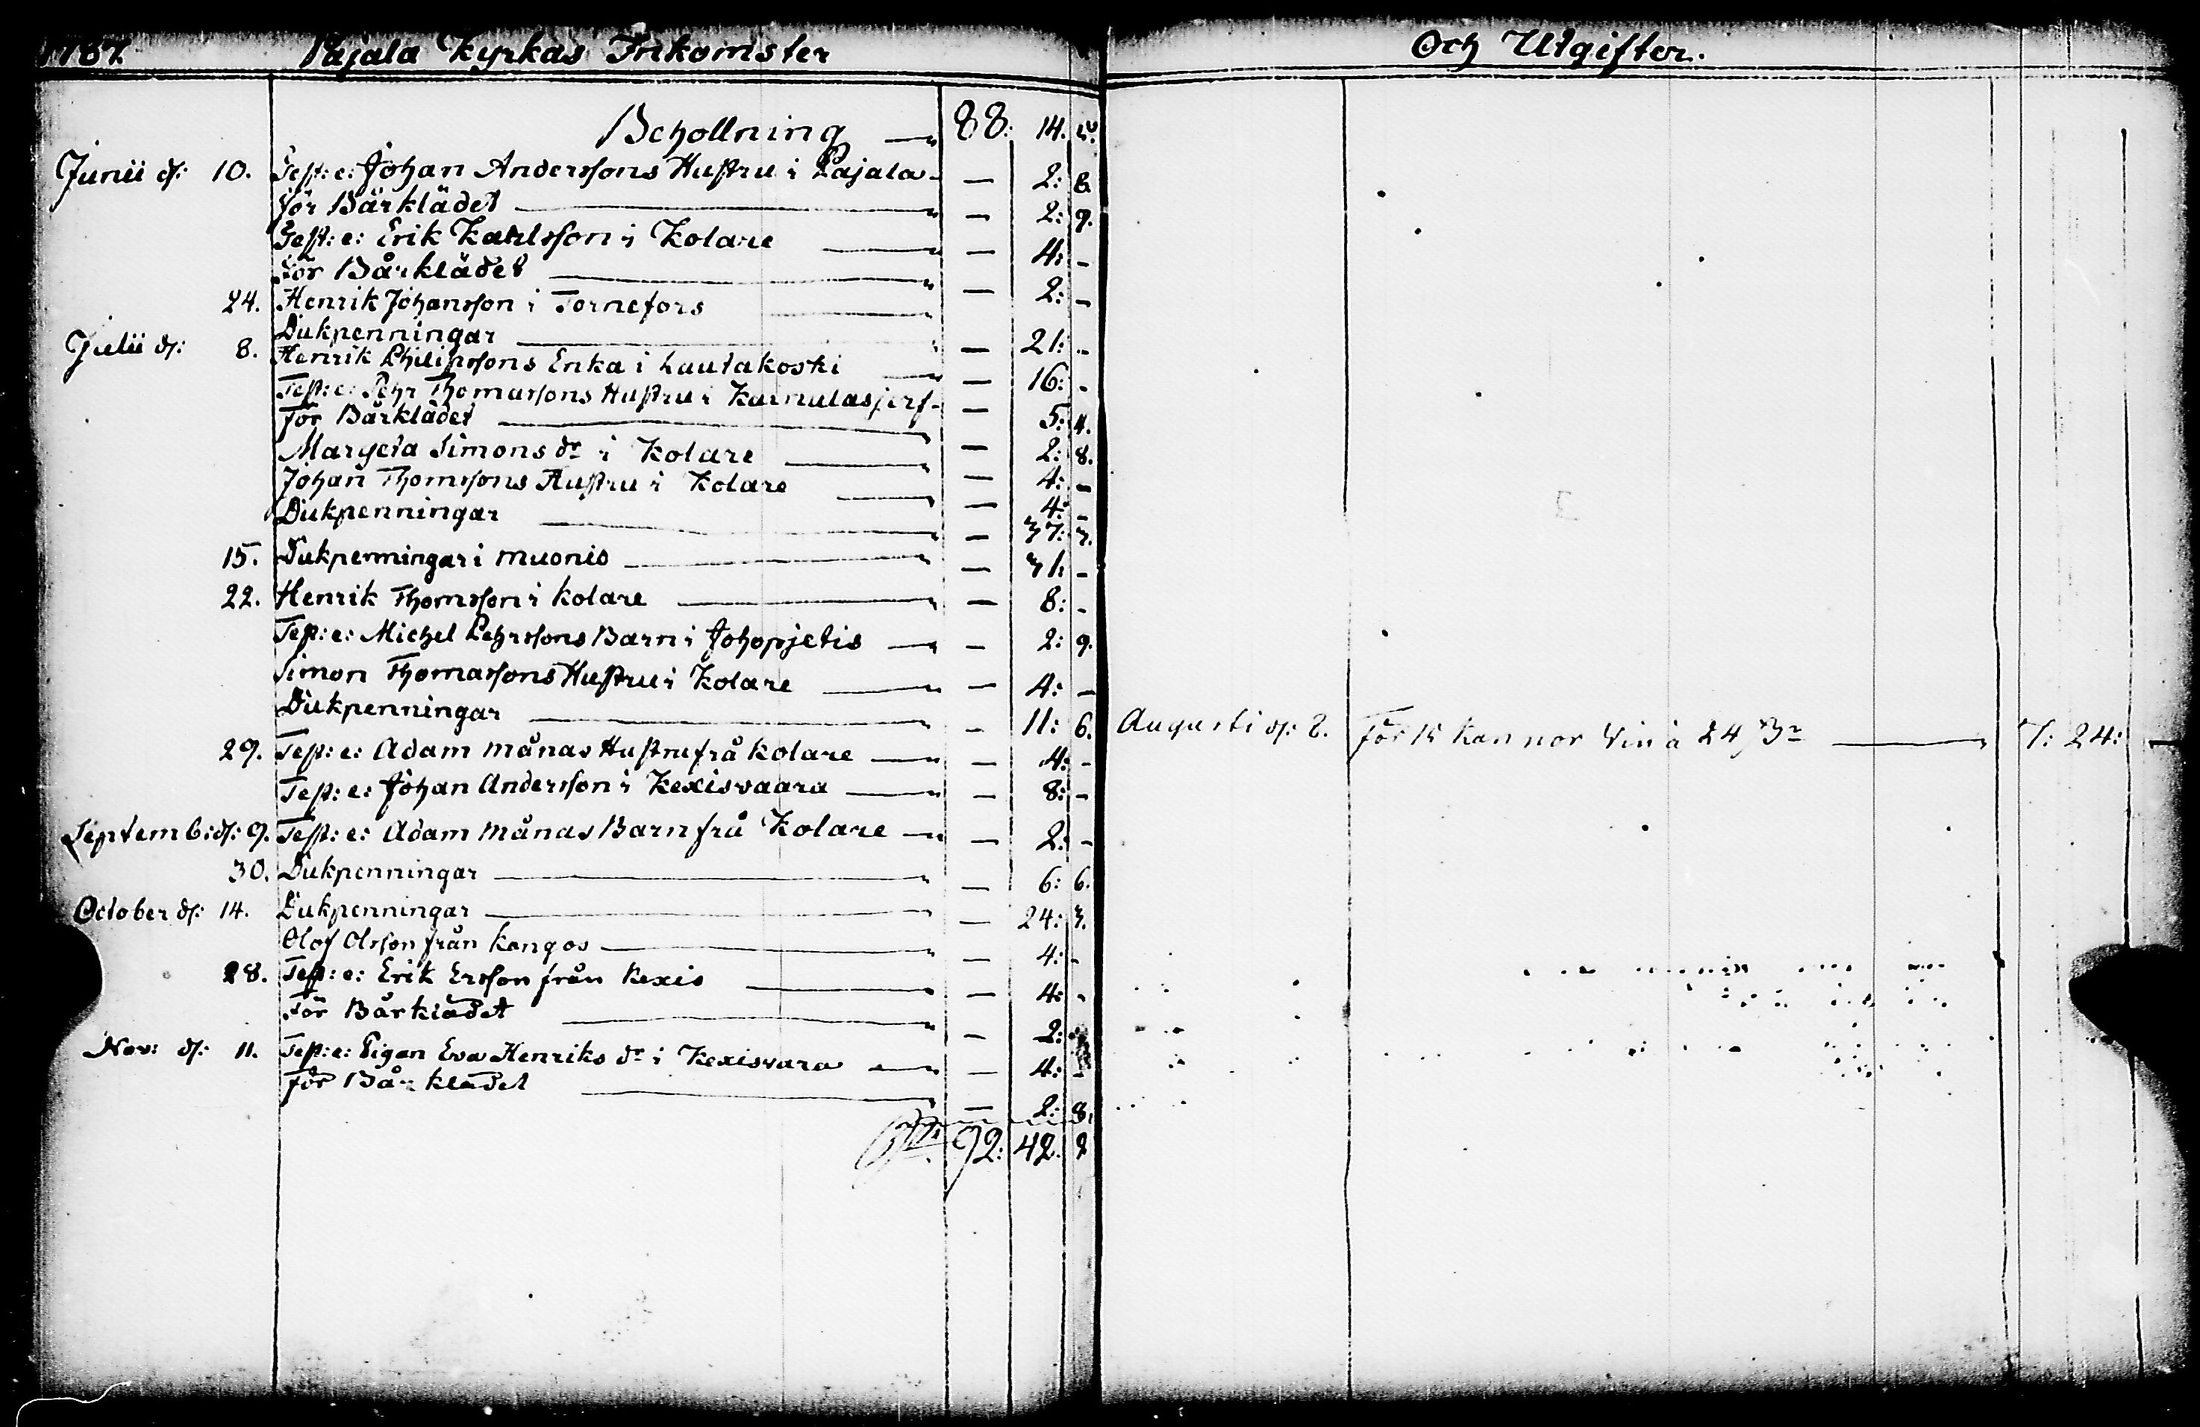 1787. Pajala Kyrkas Inkomster
Behollning 88: 14. 5.
Junii d: 10. Test: e: Johan Anderssons Hustru i Pajala — 2: 8.
för Bårklädet — 2: 9.
Test: e: Erik Karlsson i Kolare — 4: -
För Bårklädet — 2: -
24. Henrik Johansson i Tornefors
Dukpenningar — 21: -
Julii d: 8. Henrik Philipssons Enka i Lautakoski — 16: -
Test: e: Pehr Thomassons Hustru i Kaunulasjerf — 5: 4.
för Bårklädet — 2: 8.
Margeta Simons dr i Kolare — 4: -
Johan Thomssons Hustru i Kolare — 4: -
Dukpenningar — 37: 3.
15. Dukpenningar i muonio — 31: -
22. Henrik Thomsson i kolare — 8: -
Test: e: Michel Pehrssons Barn i Johopjetis — 2: 9.
Simon Thomassons Hustru i Kolare — 4: -
Dukpenningar — 11: 6.
29. Test: e: Adam månas Hustru frå kolare — 4: -
Test: e: Johan Andersson i Kexisvaara — 8: -
Septemb: d: 9. Test: e: Adam månas Barn frå Kolare — 2: -
30. Dukpenningar — 6: 6.
October d: 14. Dukpenningar — 24: 3.
Olof Olsson från kengos — 4: -
28. Test: e: Erik Ersson från Kexis — 4: -
För Bårklädet — 2:
Nov: d: 11. Test: e: Pigan Eva Henriks dr i Kexisvara — 4: -
för Bårklädet — 2: 8.
92: 42. 2
Och Utgifter.
Augusti d: 8. För 15 kannor Vin à 24 — 7: 24: —